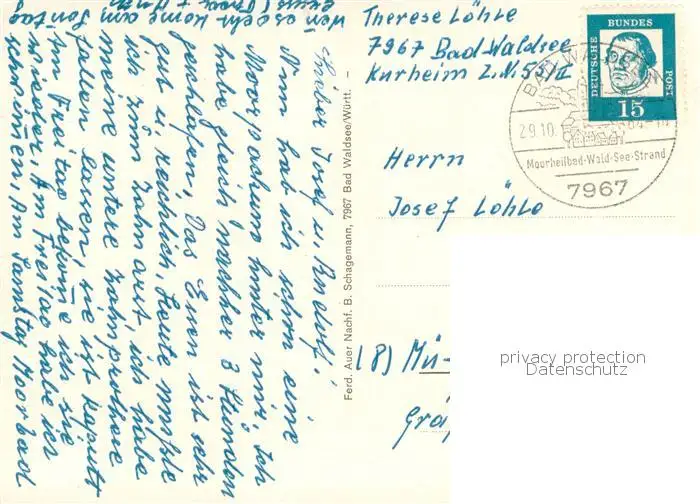 Therese Löhle
7967 Bad-Waldsee
Kurheim Z.N. 55/II
DEUTSCHE BUNDESPOST
15
BAD WALDSEE
29.10. 64-14
Moorheilbad-Wald-See-Strand
7967
Herrn
Josef Löhle
(8) Mü-
Grä
privacy protection
Datenschutz
Ferd. Auer Nachf. B. Schagemann, 7967 Bad Waldsee/Württ.
Lieber Josef u. Rudolf!
Nun hab ich schon eine
Moorpackung hinter mir. Ich
habe gleich nachher 3 Stunden
geschlafen. Das Essen ist sehr
gut u. reichlich. Heute mußte
ich zum Zahnarzt, ich habe
meine untere Zahnprothese
fallen lassen, sie ist kaputt
Am Freitag bekome ich sie
wieder. Am Freitag habe ich
schwimmen, Am Samstag Moorbad
Wenn es geht kome am Sontag